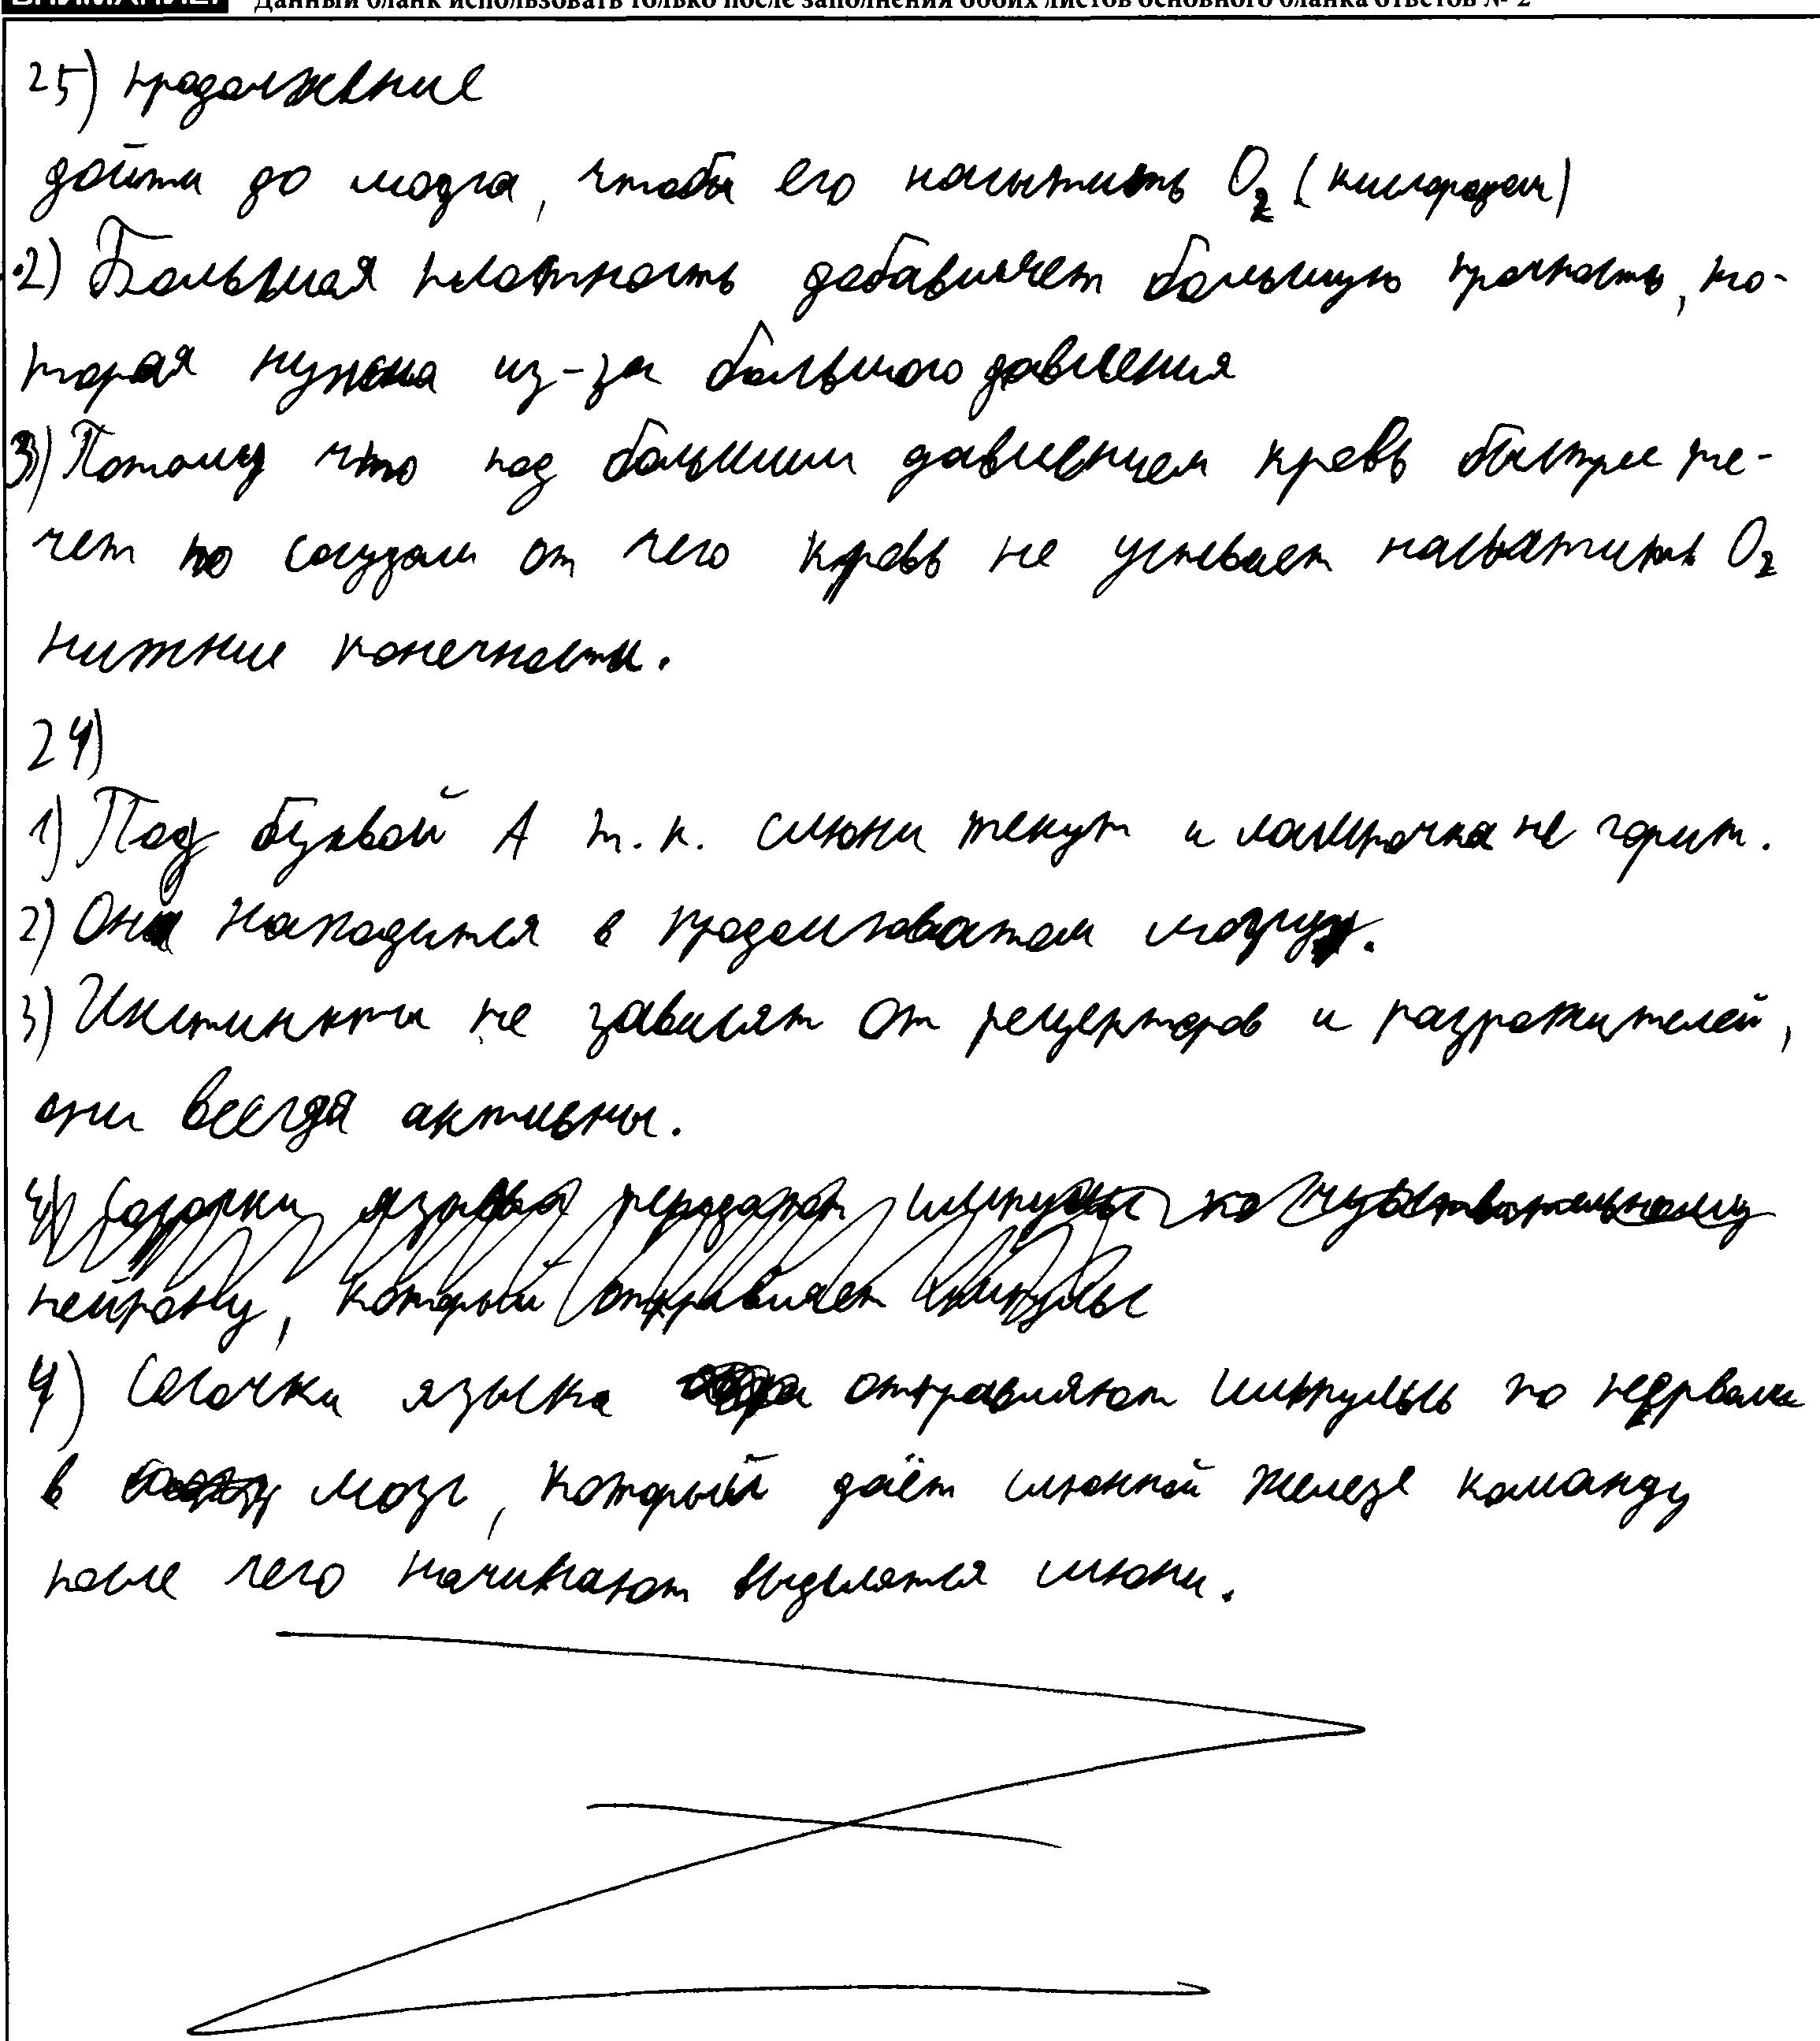 Данный бланк использовать только после заполнения обоих листов основного бланка ответов № 2
25) продолжение
дойти до мозга, чтобы его насытить O₂ (кислородом)
2) Большая плотность добавляет большую прочность, ко-
торая нужна из-за большого давления
3) Потому что под большим давлением кровь быстрее те-
чет по сосудам от чего кровь не успевает насытить O₂
нижние конечности.
24)
1) Под буквой А т.к. слюни текут и лампочка не горит.
2) Он находится в продолговатом мозгу.
3) Инстинкты не зависят от рецепторов и раздражителей,
они всегда активны.
4) Сосочки языка передают импульс по чувствительному
нейрону, который отправляет импульс
4) Сосочки языка отправляют импульс по нервам
в мозг, который даёт слюнной железе команду
после чего начинают выделятся слюни.